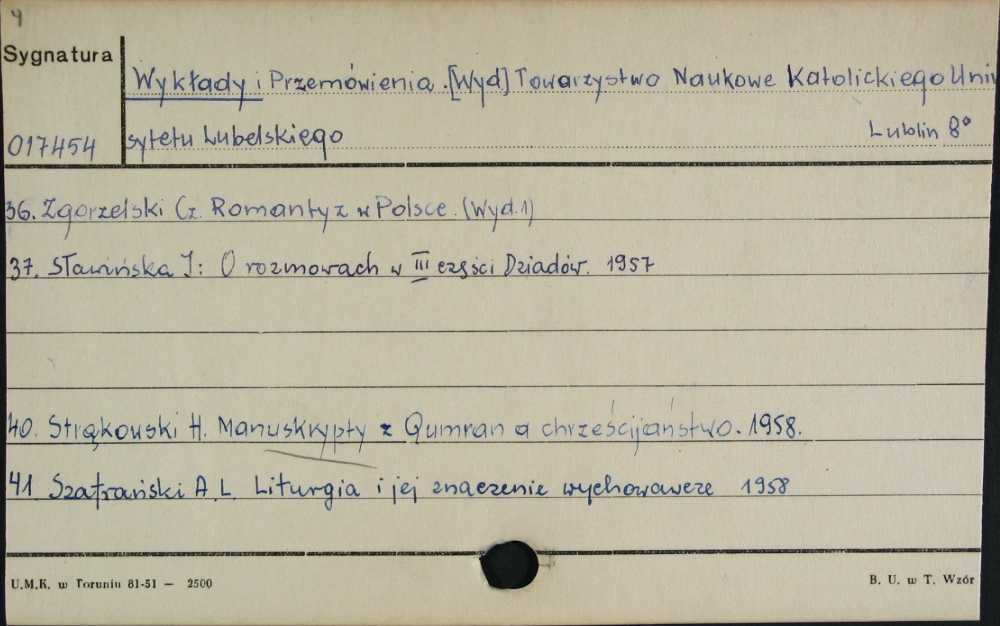 4
Sygnatura
Wykłady i Przemówienia. [Wyd] Towarzystwo Naukowe Katolickiego Uniw
017454 sytetu Lubelskiego Lublin 8°
36. Zgorzelski Cz. Romantyz w Polsce. (Wyd. 1)
37. Sławińska I: O rozmowach w III części Dziadów. 1957
40. Strąkowski H. Manuskrypty z Qumran a chrześcijaństwo. 1958.
41 Szafrański A. L. Liturgia i jej znaczenie wychowawcze 1958
U.M.K. w Toruniu 81-51 — 2500 B. U. w T. Wzór